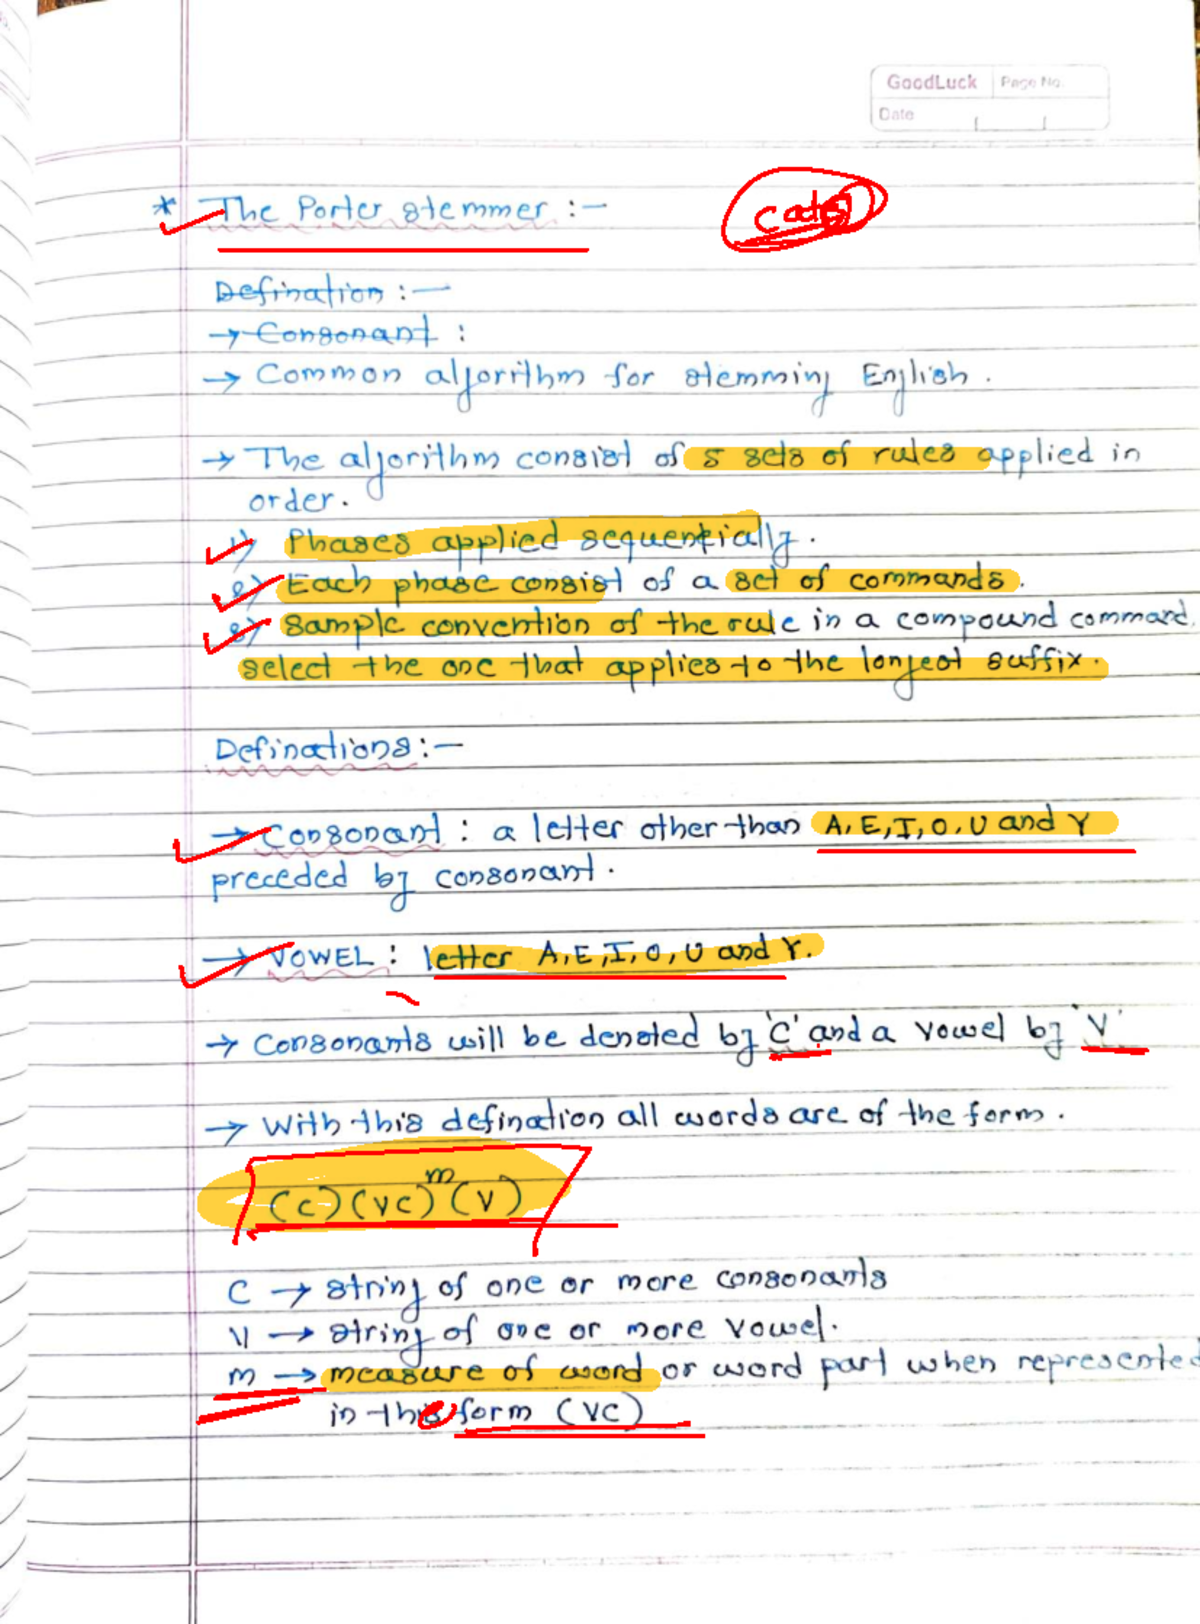 GoodLuck Page No.
Date
* The Porter stemmer :-
cats
Defination :-
→ Consonant :
→ Common algorithm for stemming English.
→ The algorithm consist of 5 sets of rules applied in
order.
1) Phases applied sequentially.
2) Each phase consist of a set of commands.
3) Sample convention of the rule in a compound command,
select the one that applies to the longest suffix.
Definations :-
→ Consonant : a letter other than A, E, I, O, U and Y
preceded by consonant.
→ VOWEL : letter A, E, I, O, U and Y.
→ Consonants will be denoted by 'C' and a vowel by 'V'
→ With this defination all words are of the form.
(C) (VC)^m (V)
C → string of one or more consonants
V → string of one or more vowel.
m → measure of word or word part when represented
in the form (VC)